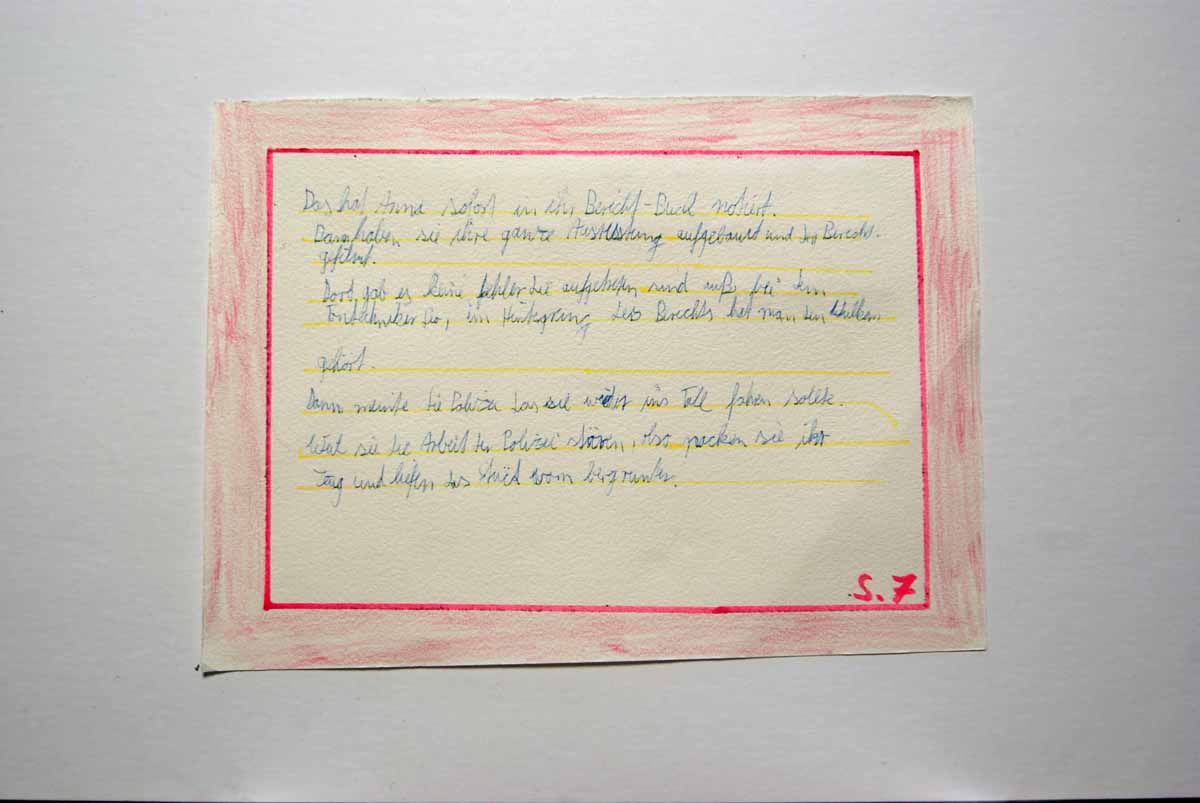 Das hat Anna sofort in ihr Bericht-Buch notiert.
Dann haben sie ihre ganze Ausrüstung aufgebaut und den Bericht.
gefilmt.
Dort gab es keine fehler die aufgetreten sind auße bei dem
Tontechniker Leo, im Hintegrung des Berichts hat man den
gehört.
Dann meinte die Polizei das sie wieder ins Tall fahren sollte.
Weil sie die Arbeit der Polizei stören, also packen sie ihr
Zeug und liefen das Stück vom berg runter.
S. 7